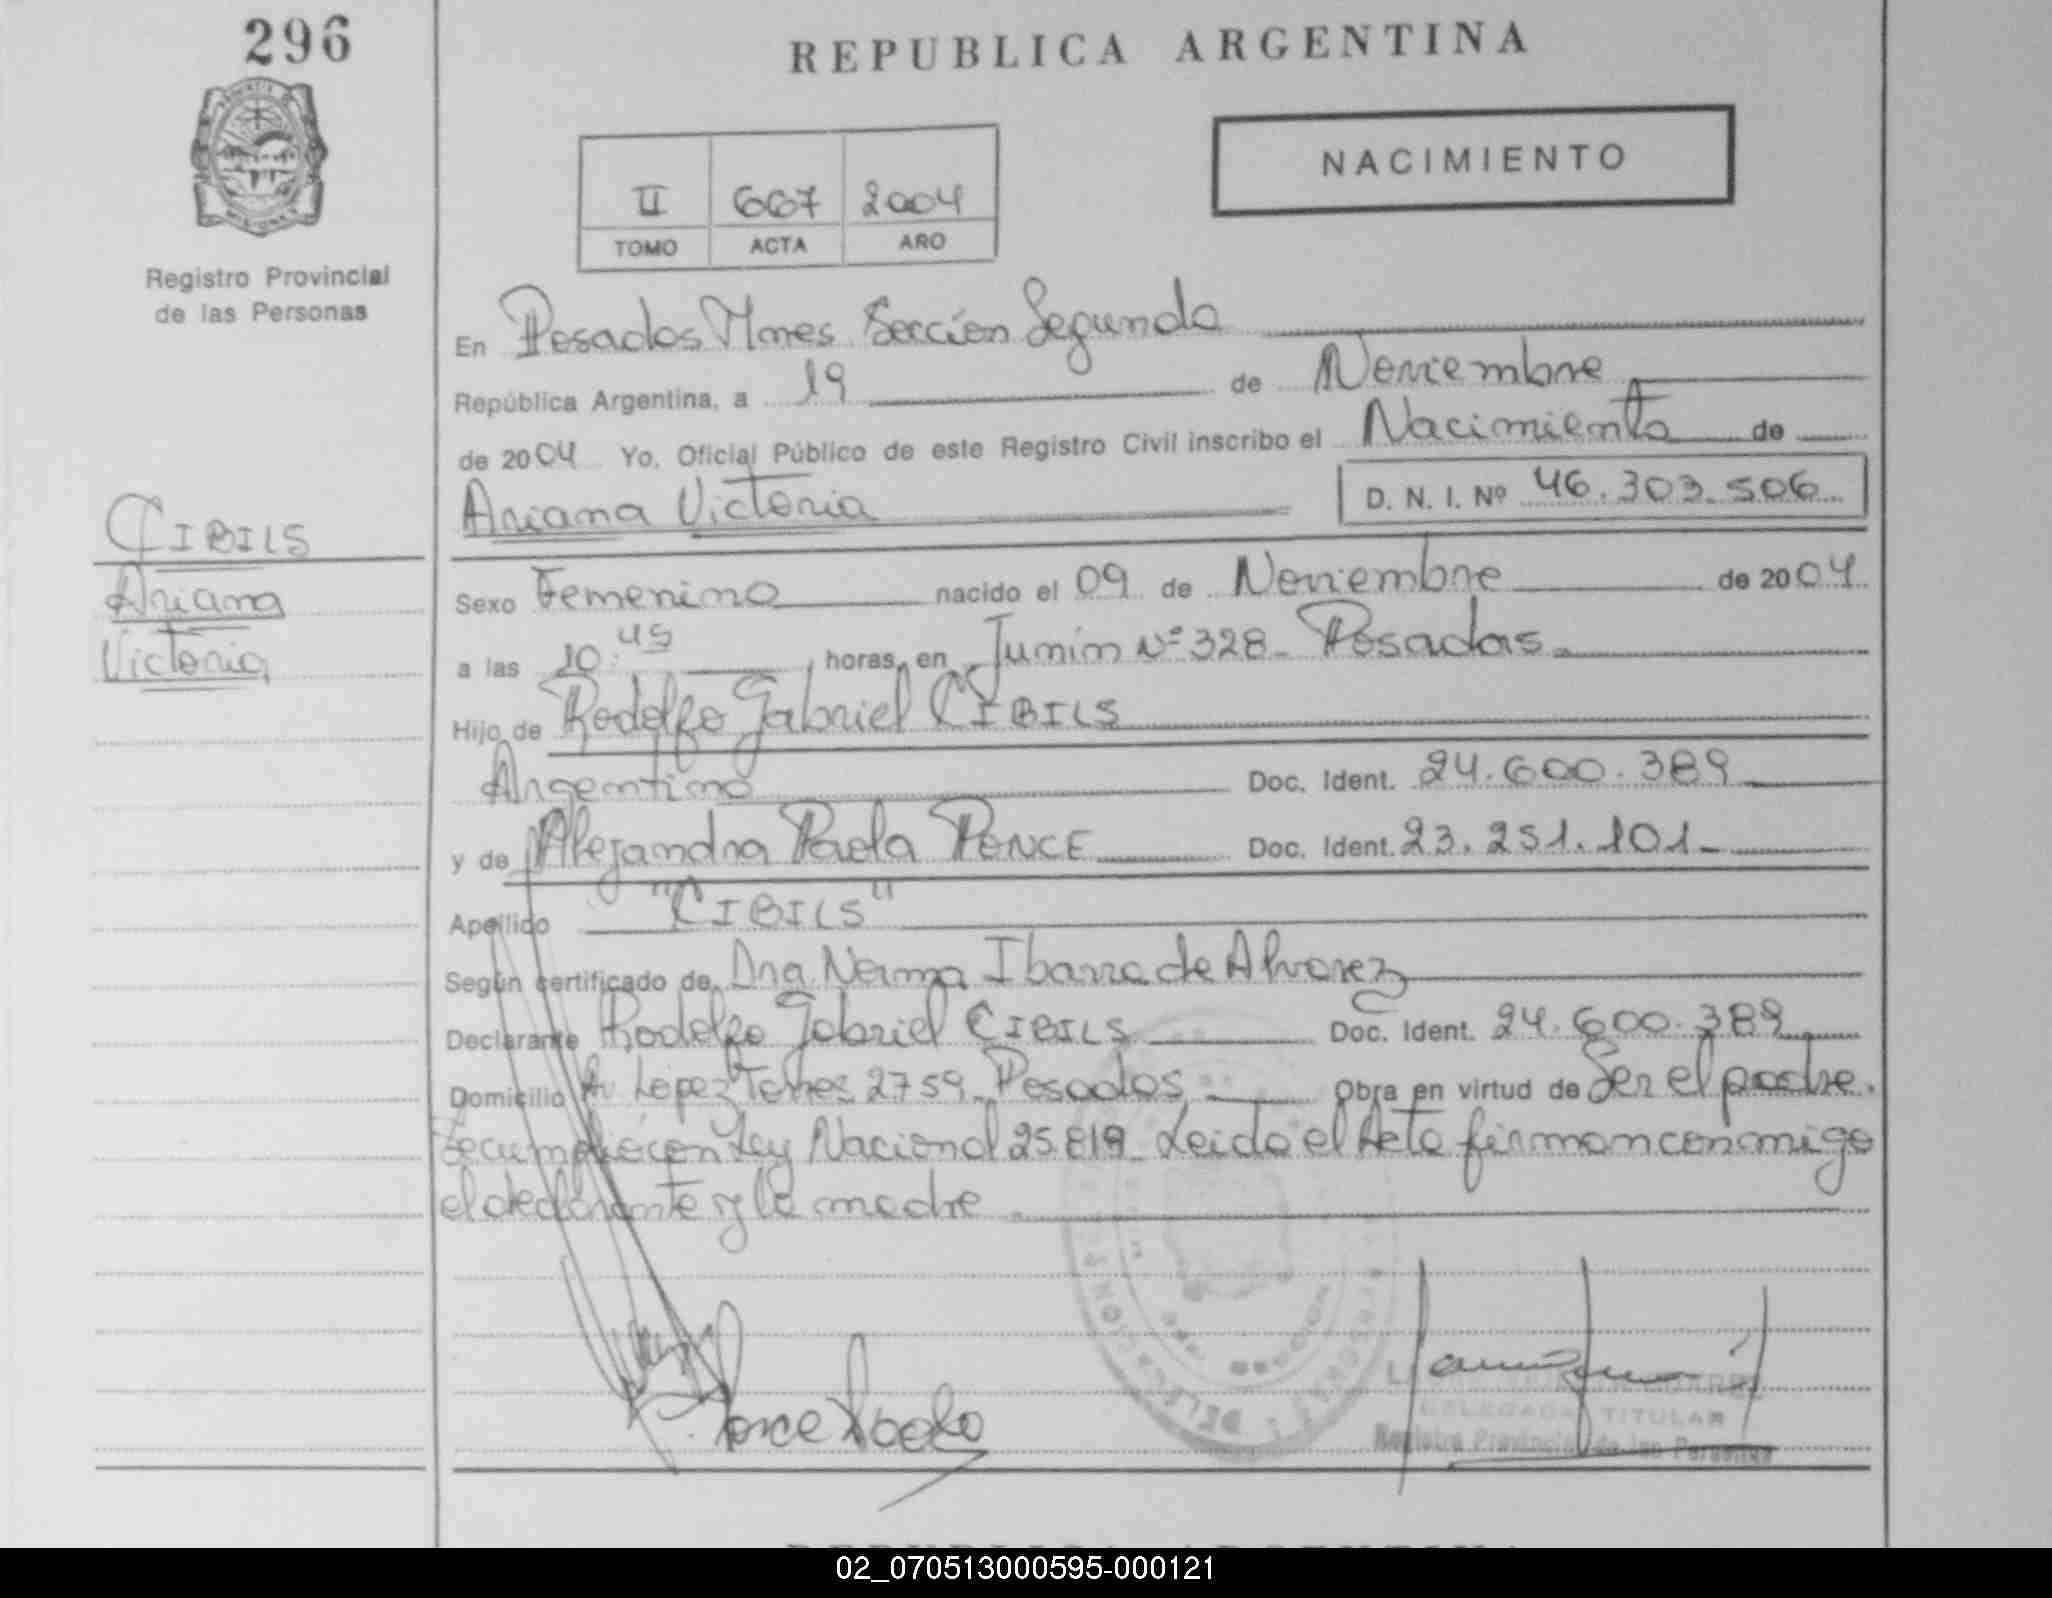 296
REPUBLICA ARGENTINA
NACIMIENTO
II 667 2004
TOMO ACTA AÑO
Registro Provincial
de las Personas
En Posadas Mnes. Sección Segunda
República Argentina, a 19 de Noviembre
de 2004 Yo, Oficial Público de este Registro Civil inscribo el Nacimiento de
Ariana Victoria D. N. I. Nº 46.303.506
CIBILS
Ariana
Victoria
Sexo Femenino nacido el 09 de Noviembre de 2004
a las 10:45 horas, en Junín Nº 328 - Posadas
Hijo de Rodolfo Gabriel CIBILS
Argentino Doc. Ident. 24.600.389
y de Alejandra Paola PONCE Doc. Ident. 23.251.101-
Apellido "CIBILS"
Según certificado de Dra. Norma Ibarra de Alvarez
Declarante Rodolfo Gabriel CIBILS Doc. Ident. 24.600.389
Domicilio Av López Torres 2759 - Posadas Obra en virtud de Ser el padre.
Se cumplió con Ley Nacional 25.819 - Leido el Acta firman conmigo
el declarante y la madre
Ponce Paola
DELEGADA TITULAR
Registro Provincial de las Personas
REPUBLICA ARGENTINA
02_070513000595-000121